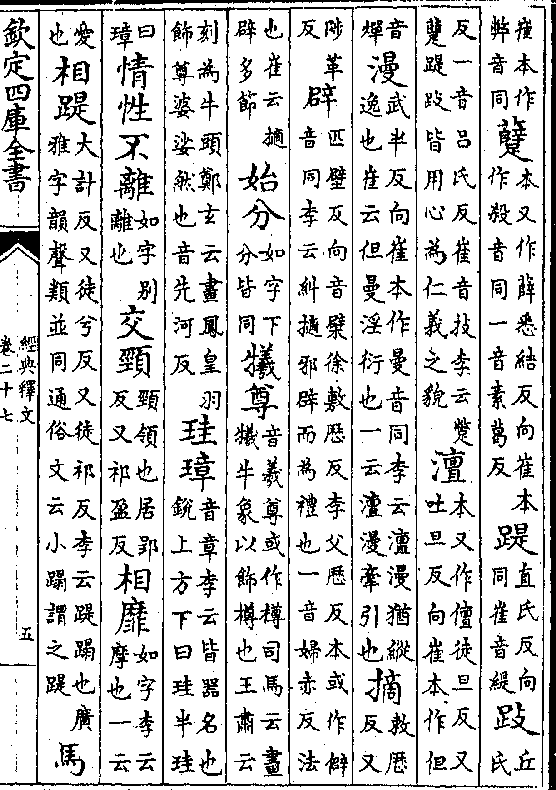 崔本作弊音同蹩本又作薛悉結反向崔本作殺音同一音素葛反踶直氏反向同崔音緹跂丘氏
反一音呂氏反崔音技李云蹩躠踶跂皆用心為仁義之貌澶本又作儃徒旦反又吐旦反向崔本作但
音燀漫武半反向崔本作曼音同李云澶漫猶縱逸也崔云但曼淫衍也一云澶漫牽引也摘敕歴反又
陟革反辟匹壁反向音檗徐敷歴反李父歴反本或作僻音同李云糾擿邪辟而為禮也一音婦亦反法
也崔云擿辟多節始分如字下分皆同犧尊音羲尊或作樽司馬云畫犧牛象以飾樽也王肅云
刻為牛頭鄭玄云畫鳳皇羽飾尊婆娑然也音先河反珪璋音章李云皆器名也銳上方下曰珪半珪
曰璋情性不離如字別離也交頸頸領也居郢反又祁盈反相靡如字李云摩也一云
愛也相踶大計反又徒兮反又徒祁反李云踶蹋也廣雅字韻聲類並同通俗文云小蹋謂之踶馬
欽定四庫全書
經典釋文
卷二十七
五